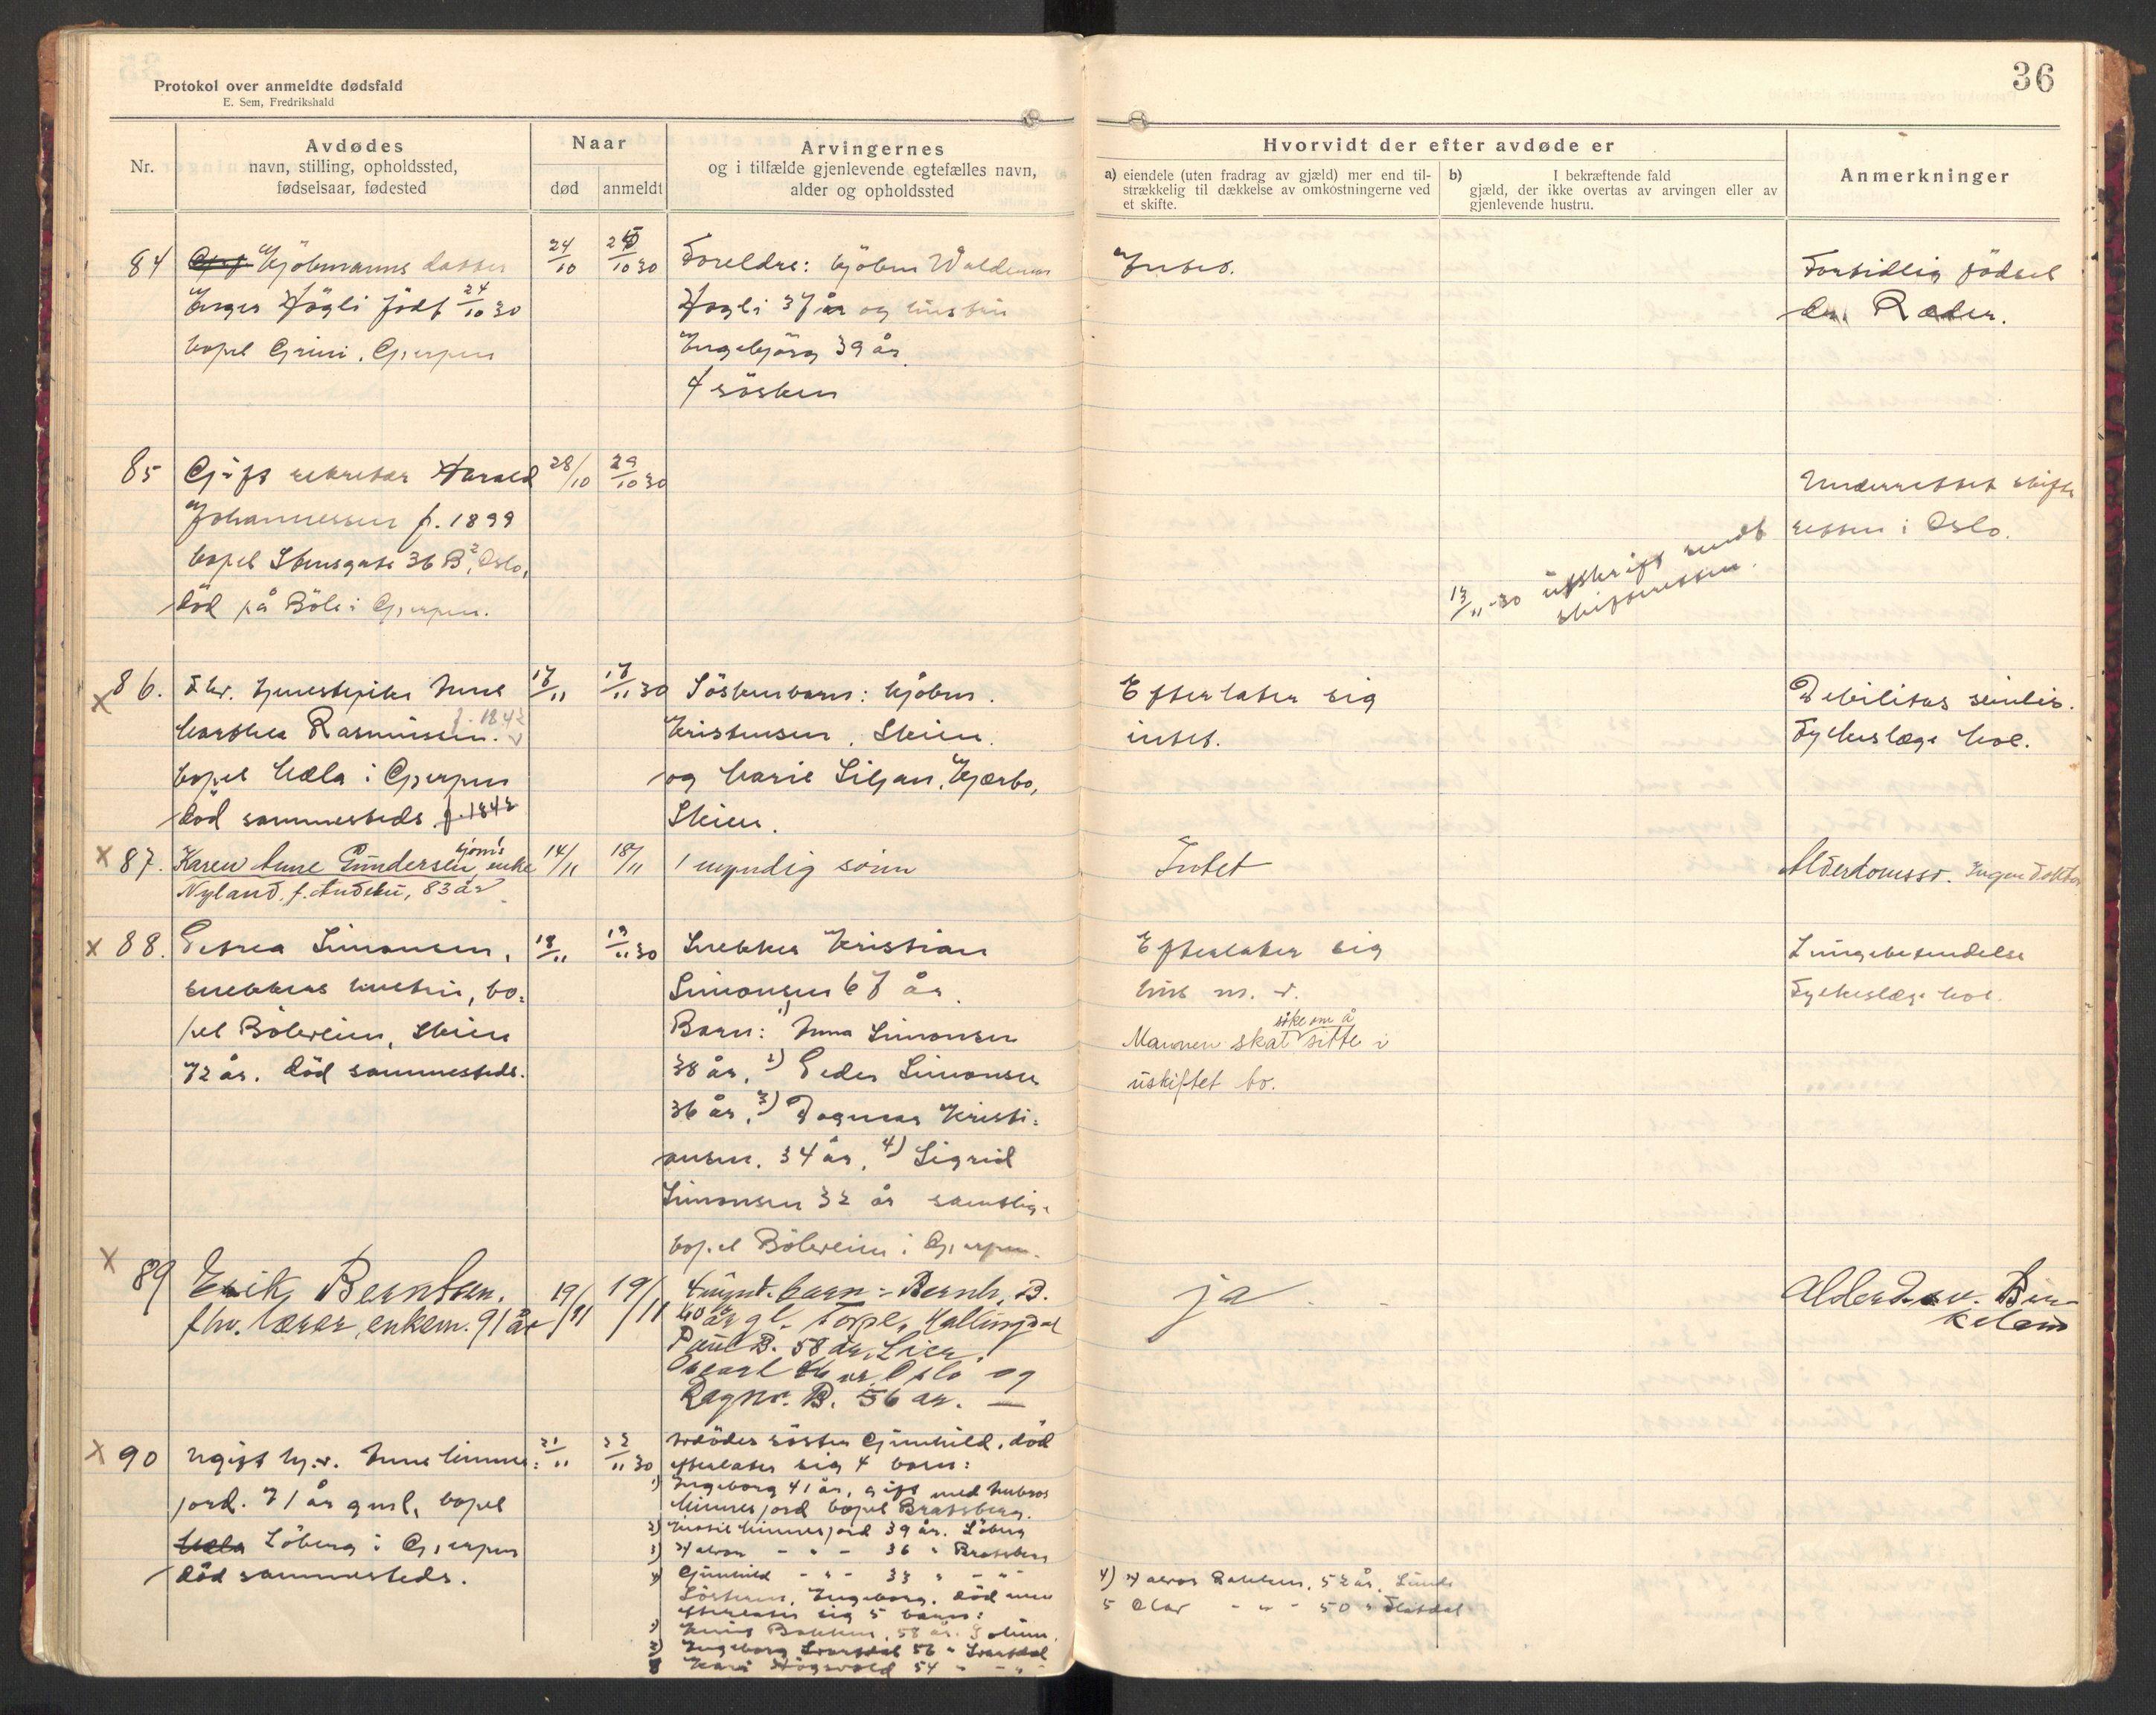 Protokol over anmeldte dødsfald
E. Sem, Fredrikshald
36
Nr.
Avdødes
navn, stilling, opholdssted,
fødselsaar, fødested
Naar
død
anmeldt
Arvingernes
og i tilfælde gjenlevende egtefælles navn,
alder og opholdssted
Hvorvidt der efter avdøde er
a) eiendele (uten fradrag av gjæld) mer end til-
strækkelig til dækkelse av omkostningerne ved
et skifte.
b) I bekræftende fald
gjæld, der ikke overtas av arvingen eller av
gjenlevende hustru.
Anmerkninger
84
Kjöbmanns datter
Inger Högli född 24/10 30
bopel Grini, Gjerpen
24/10
25/10 30
Foreldre: kjöbm Waldemar
Högli 37 år og hustru
Ingebjörg 39 år.
4 søsken
Intet.
Fortidlig födsel
dr. Ræder.
85
Gift sekretær Harald
Johannessen f. 1899
bopel Stensgate 36 B², Oslo,
död på Böle i Gjerpen.
28/10
29/10 30
13/11-30 utskrift sendt
skifteretten.
Underrettet skifte
retten i Oslo.
x 86.
Fhv. tjenestepike Anne
Marthea Rasmussen. f. 1842
bopel Mæla i Gjerpen
död sammesteds. f. 1842
17/11
17/11 30
Söskenbarn: kjöbm.
Kristensen, Skien.
og Marie Liljan, Kjærbo,
Skien.
Efterlater sig
intet.
Debilitas senilis.
Fylkeslæge Moe.
x 87.
Karen Anne Gundersen, tjom's enke
Nyland, f. Audsku, 83 år
14/11
18/11
1 myndig sönn
Intet
Alderdomssv. Ingen doktor
x 88.
Petrea Simonsen,
snekkers hustru, bo-
pel Böleveien, Skien
72 år. död sammesteds.
18/11
19/11 30
Snekker Kristian
Simonsen 67 år.
Barn: 1) Anna Simonsen
38 år, 2) Peder Simonsen
36 år, 3) Dagmar Kristi-
ansen, 34 år, 4) Sigrid
Simonsen 32 år samtlige
bopel Böleveien i Gjerpen.
Efterlater sig
hus m. v.
Mannen skal søke om å sitte i
uskiftet bo.
Lungebetendelse
Fylkeslæge Moe.
x 89
Erik Berntsen.
fhv. lærer, enkem. 91 år
19/11
19/11
4 mynd. barn: Bernh. B.
60 år gl. Torpe, Hallingdal
Paul B. 58 år, Lier,
år Oslo og
Ragnv. B. 56 år. —
ja
Alderd.sv. Bir-
keland
x 90
Ugift hj.v. Anne Kinne-
jord. 71 år gml, bopel
Mæla Löberg i Gjerpen
död sammesteds.
21/11
22/11 30
Avdödes söster Gunhild, död
efterlater sig 4 barn:
1) Ingeborg 41 år, gift med
jord bopel Bratsberg.
2) 39 år. Löberg
3) Halvor - " - 36 " Bratsberg
4) Gunhild - " - 33 " - " -
Sösteren, Ingeborg, död men
efterlater sig 5 barn:
1) Bakken, 58 år.
2) Ingeborg Svartdal 56 " Svartdal
3 Kari 54 " - " -
4) Halvor Bakken, 52 år. Lunde
5 Olav - " - 50 " Flatdal